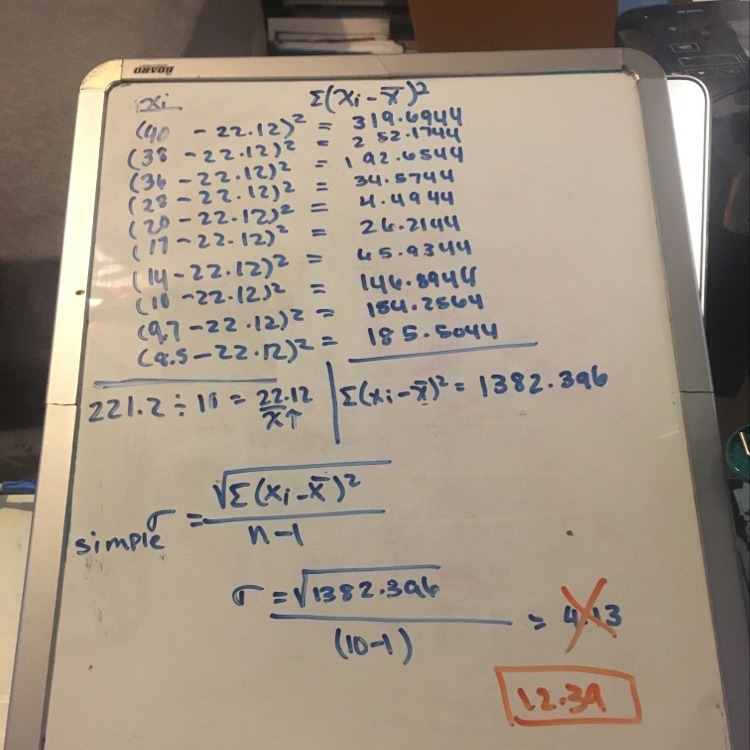 BOARD
xi Σ(xi-x̄)²
(40 - 22.12)² = 319.6944
(38 - 22.12)² = 252.1744
(36 - 22.12)² = 192.6544
(28 - 22.12)² = 34.5744
(20 - 22.12)² = 4.4944
(17 - 22.12)² = 26.2144
(14 - 22.12)² = 65.9344
(10 - 22.12)² = 146.8944
(9.7 - 22.12)² = 154.2564
(8.5 - 22.12)² = 185.5044
221.2 ÷ 10 = 22.12 Σ(xi-x̄)² = 1382.396
x̄↑
simple σ = √Σ(xi-x̄)²
n-1
σ = √1382.396
(10-1)
= 4.13
12.39